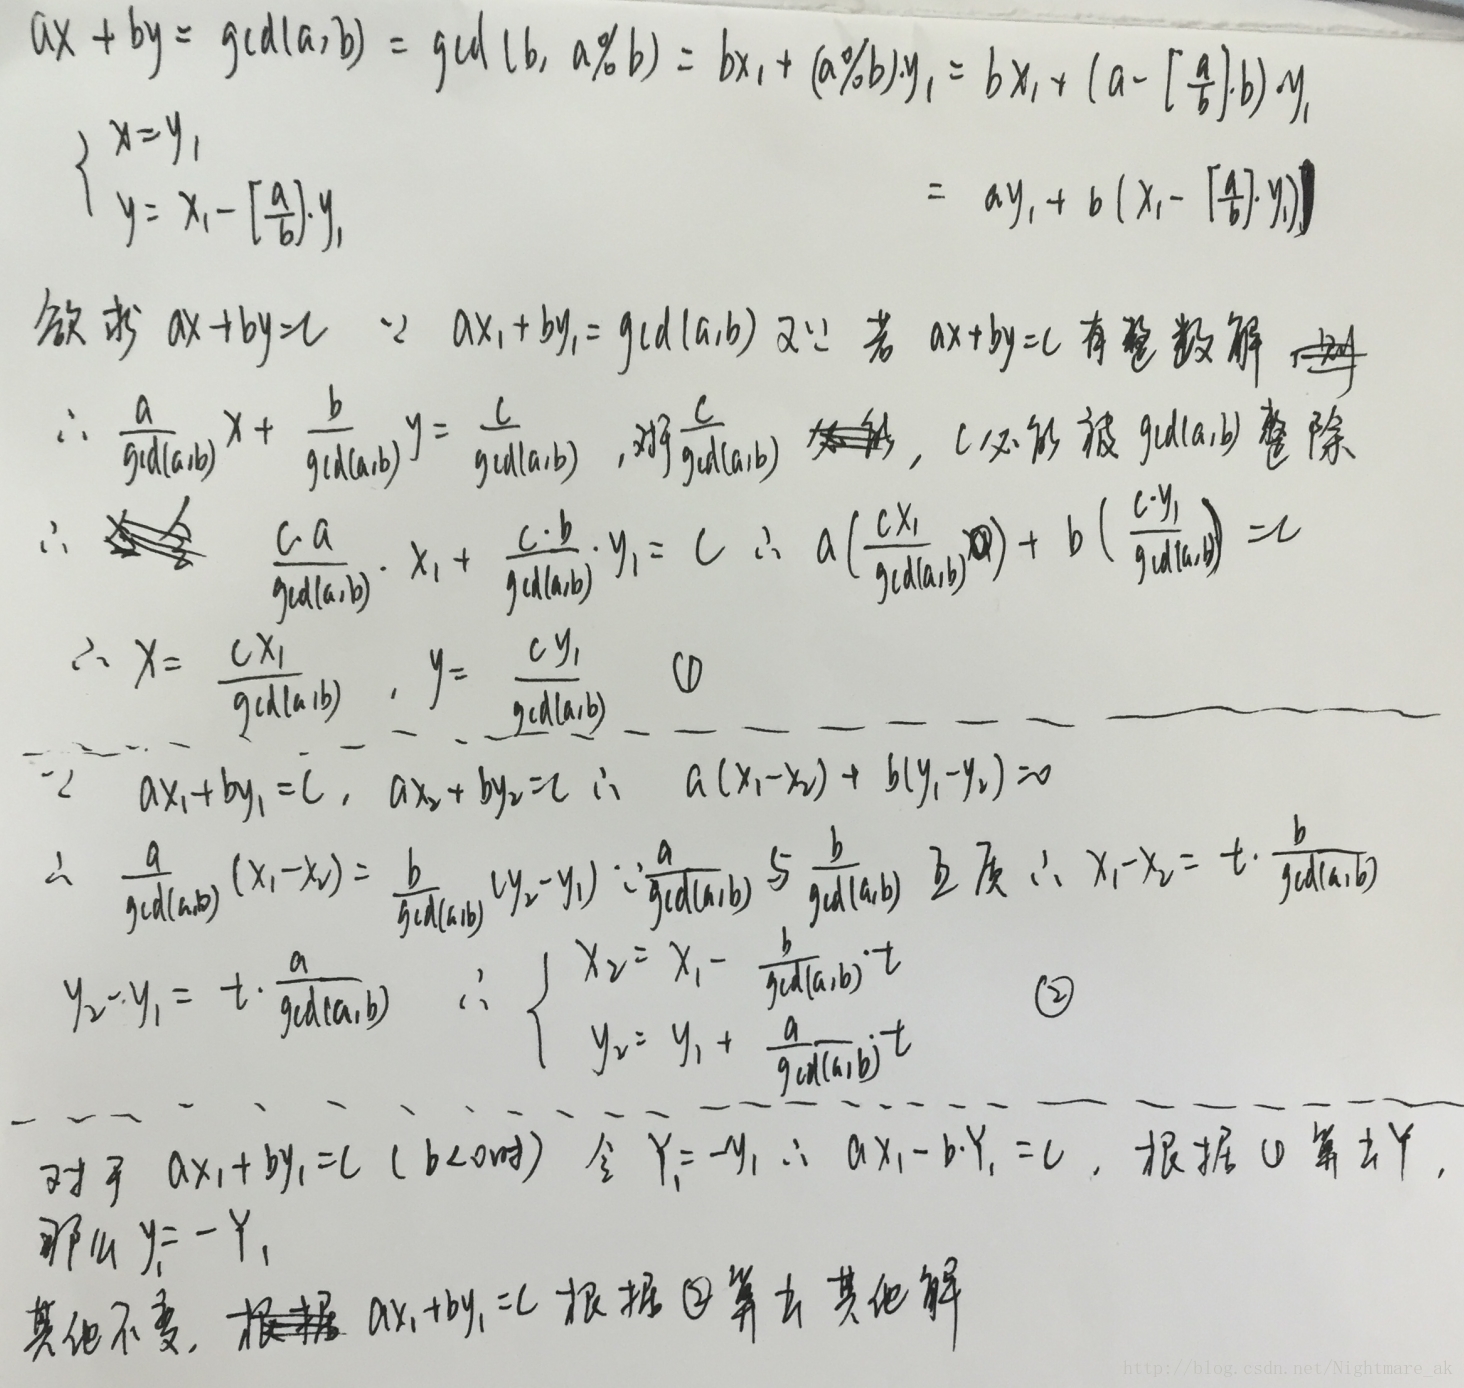 ax + by = gcd(a,b) = gcd(b, a%b) = bx₁ + (a%b)·y₁ = bx₁ + (a - [a/b]·b)·y₁
{ x = y₁
y = x₁ - [a/b]·y₁
= ay₁ + b(x₁ - [a/b]·y₁)
欲求 ax+by=c ∵ ax₁+by₁=gcd(a,b) 又∵ 若 ax+by=c 有整数解
∴ a/gcd(a,b) x + b/gcd(a,b) y = c/gcd(a,b) , 对于 c/gcd(a,b) , c必能被gcd(a,b)整除
∴ c·a/gcd(a,b) · x₁ + c·b/gcd(a,b) · y₁ = c ∴ a(cx₁/gcd(a,b)) + b(c·y₁/gcd(a,b)) = c
∴ x = cx₁/gcd(a,b) , y = cy₁/gcd(a,b) ①
∵ ax₁+by₁=c, ax₂+by₂=c ∴ a(x₁-x₂) + b(y₁-y₂)=0
∴ a/gcd(a,b) (x₁-x₂) = b/gcd(a,b) (y₂-y₁) ∵ a/gcd(a,b) 与 b/gcd(a,b) 互质 ∴ x₁-x₂ = t· b/gcd(a,b)
y₂-y₁ = t· a/gcd(a,b) ∴ { x₂ = x₁ - b/gcd(a,b)·t
y₂ = y₁ + a/gcd(a,b)·t ②
对于 ax₁+by₁=c (b<0时) 令 Y₁=-y₁ ∴ ax₁-b·Y₁=c, 根据①算出Y,
那么 y₁=-Y₁
其他不变, ax₁+by₁=c 根据②算出其他解
http://blog.csdn.net/Nightmare_ak